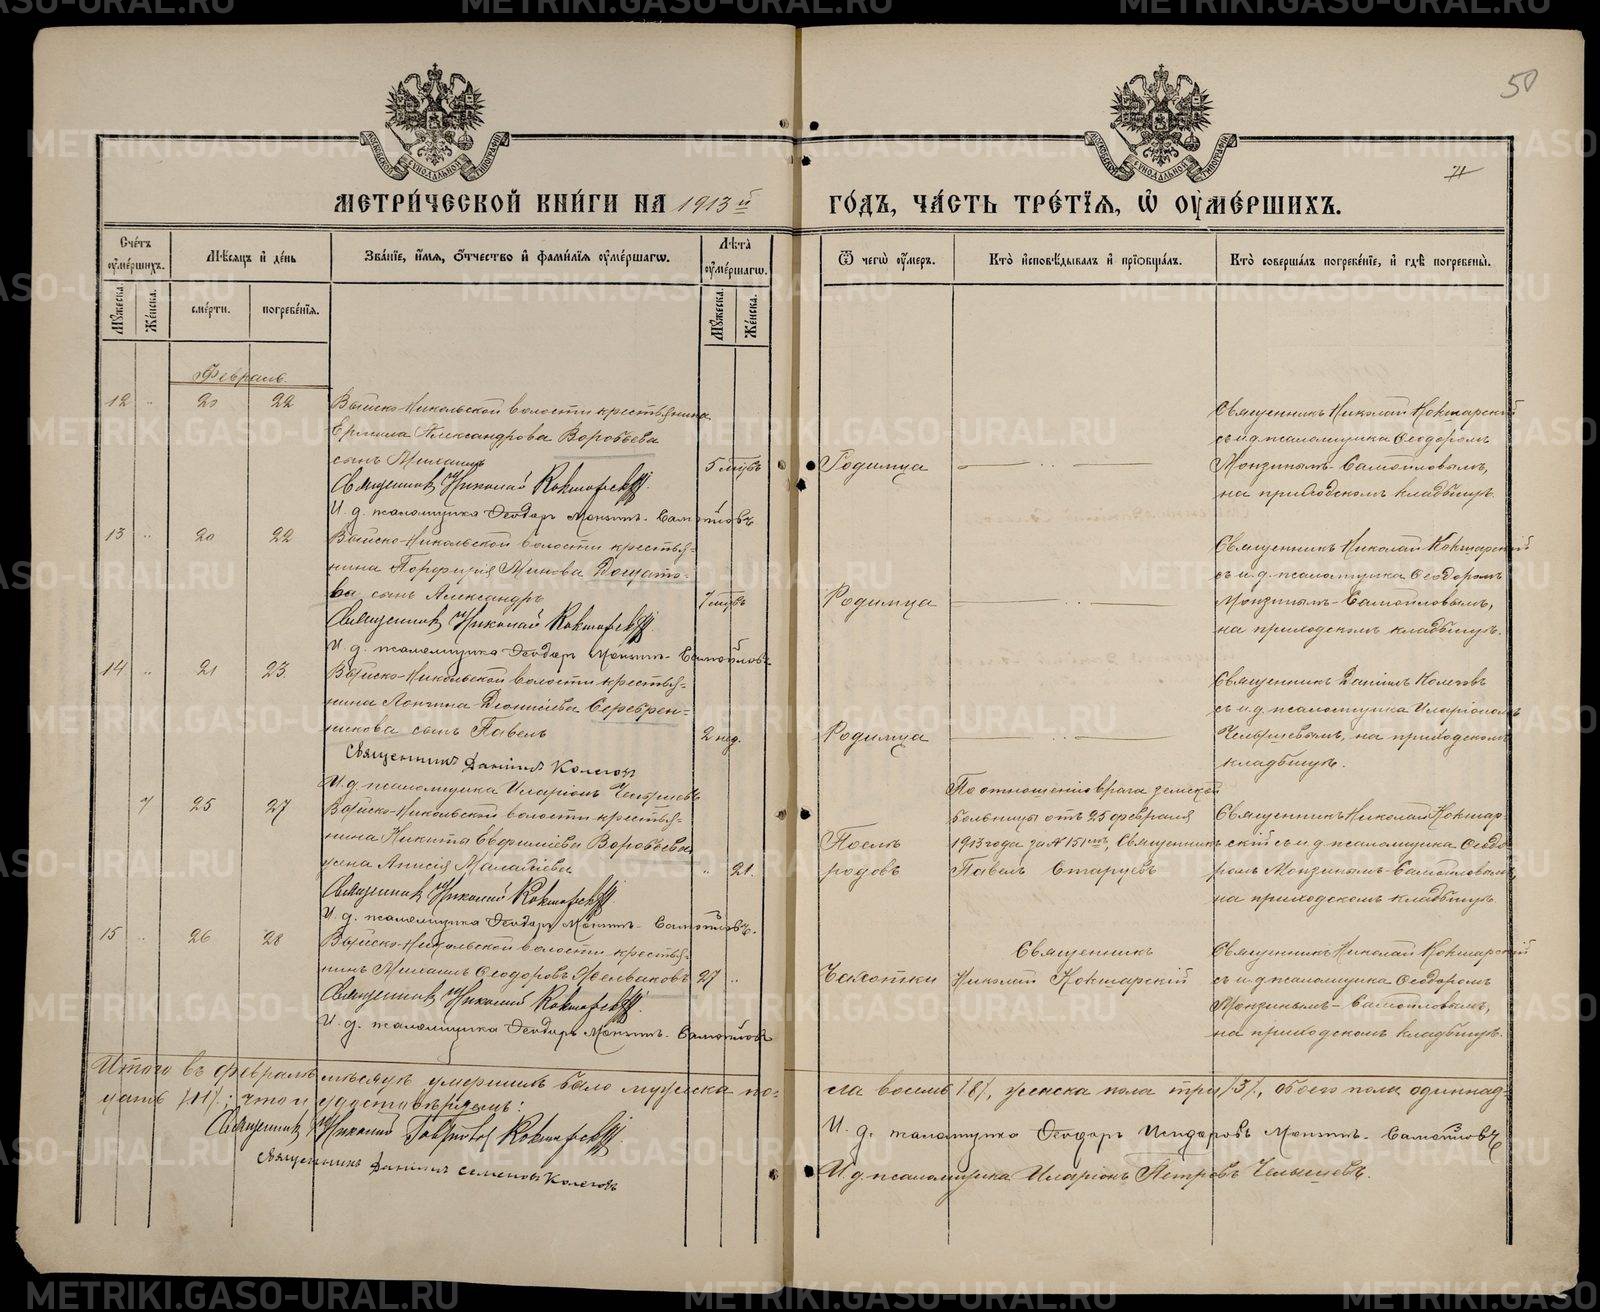 50
71
МЕТРИЧЕСКОЙ КНИГИ НА 1913й ГОДЪ, ЧАСТЬ ТРЕТІЯ, Ѿ ОУМЕРШИХЪ.
Счетъ оумершихъ.
Мѣсяцъ и день
Званіе, имя, отчество и фамилія оумершагѡ.
Лѣта оумершагѡ.
Ѿ чегѡ оумеръ.
Кто исповѣдывалъ и пріобщалъ.
Кто совершалъ погребеніе, и гдѣ погребены.
Мужеска.
Женска.
смерти.
погребенія.
Мужеска.
Женска.
Февраль.
12 " 20 22 Выйско-Никольской волости крестьянина
Ермила Александрова Воробьева
сынъ Михаилъ 5 мцвъ Родимца
Священникъ Николай Кокшарскій.
И. д. псаломщика Ѳеодоръ Монзинъ-Самойловъ
Священникъ Николай Кокшарскій
съ и. д. псаломщика Ѳеодоромъ
Монзинымъ-Самойловымъ,
на приходскомъ кладбищѣ.
13 " 20 22 Выйско-Никольской волости крестья-
нина Порфирія Минова Дощато-
ва сынъ Александръ 7 мцвъ Родимца
Священникъ Николай Кокшарскій.
И. д. псаломщика Ѳеодоръ Монзинъ-Самойловъ
Священникъ Николай Кокшарскій
съ и. д. псаломщика Ѳеодоромъ
Монзинымъ-Самойловымъ,
на приходскомъ кладбищѣ.
14 " 21 23 Выйско-Никольской волости крестья-
нина Лонгина Діонисіева Серебрен-
никова сынъ Павелъ 2 нед. Родимца
Священникъ Даніилъ Колеговъ
И. д. псаломщика Иларіонъ Челышевъ
Священникъ Даніилъ Колеговъ
съ и. д. псаломщика Иларіономъ
Челышевымъ, на приходскомъ
кладбищѣ.
7 25 27 Выйско-Никольской волости крестья-
нина Никиты Евфиміева Воробьева
жена Анисія Малафіева " 21. Послѣ родовъ
Священникъ Николай Кокшарскій
И. д. псаломщика Ѳеодоръ Монзинъ-Самойловъ.
По отношенію врача земской
больницы отъ 25 февраля
1913 года за № 151мъ, Священникъ
Павелъ Старцевъ
Священникъ Николай Кокшар-
скій съ и. д. псаломщика Ѳеодо-
ромъ Монзинымъ-Самойловымъ,
на приходскомъ кладбищѣ.
15 " 26 28 Выйско-Никольской волости крестья-
нинъ Михаилъ Ѳеодоровъ Желваковъ 27 " Чахотки
Священникъ Николай Кокшарскій.
И. д. псаломщика Ѳеодоръ Монзинъ-Самойловъ
Священникъ
Николай Кокшарскій
Священникъ Николай Кокшарскій
съ и. д. псаломщика Ѳеодоромъ
Монзинымъ-Самойловымъ,
на приходскомъ кладбищѣ.
Итого въ февралѣ мѣсяцѣ умершихъ было мужеска по-
ла восемь /8/, женска пола три /3/, обоего пола одиннад-
цать /11/; что и удостовѣряемъ:
Священникъ Николай Гавриловъ Кокшарскій.
Священникъ Даніилъ Семеновъ Колеговъ
И. д. псаломщика Ѳеодоръ Исидоровъ Монзинъ-Самойловъ
И. д. псаломщика Иларіонъ Петровъ Челышевъ.
METRIKI.GASO-URAL.RU